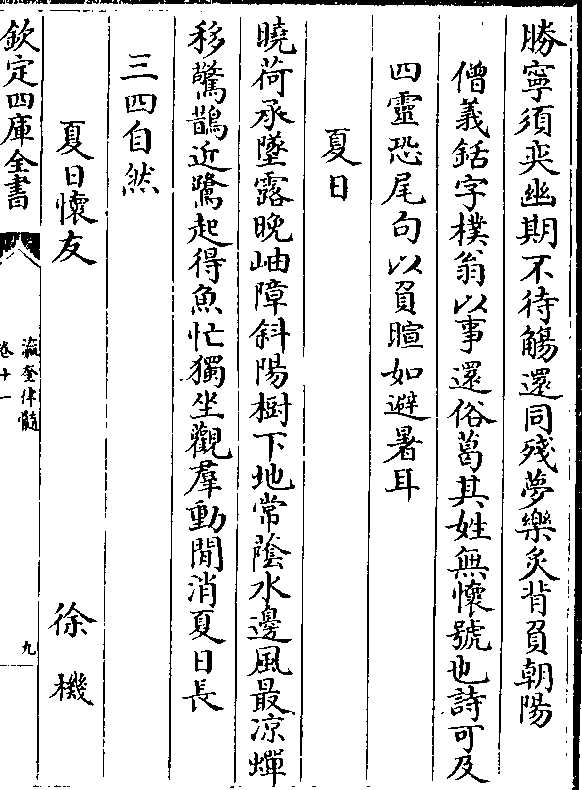 勝寧須奕幽期不待觴還同殘夢樂炙背負朝陽
僧義銛字樸翁以事還俗葛其姓無懷號也詩可及
四靈恐尾句以負暄如避暑耳
夏日
曉荷承墜露晚岫障斜陽樹下地常蔭水邊風最凉蟬
移驚鵲近鷺起得魚忙獨坐觀羣動閒消夏日長
三四自然
夏日懷友
徐機
欽定四庫全書
瀛奎律髓
卷十一
九